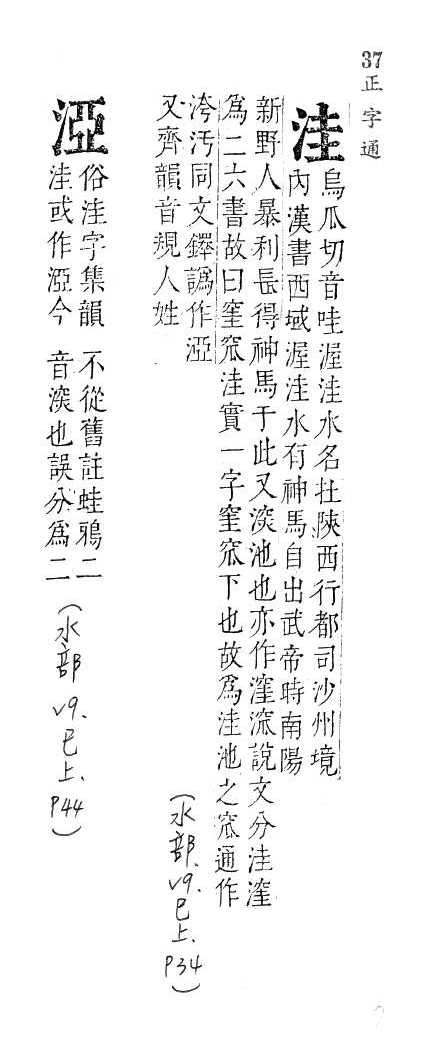 37
正字通
洼
烏瓜切音哇渥洼水名在陝西行都司沙州境
內漢書西域渥洼水有神馬自出武帝時南陽
新野人暴利長得神馬于此又深池也亦作漥深說文分洼漥
為二六書故曰窐窊洼實一字窐窊下也故為洼池之窊通作
洿汚同文鐸譌作浧
又齊韻音規人姓
(水部 v9.巳上.P34)
俗洼字集韻 不從舊註蛙鴉二
洼或作今 音深也誤分為二
(水部 v9.巳上.P44)